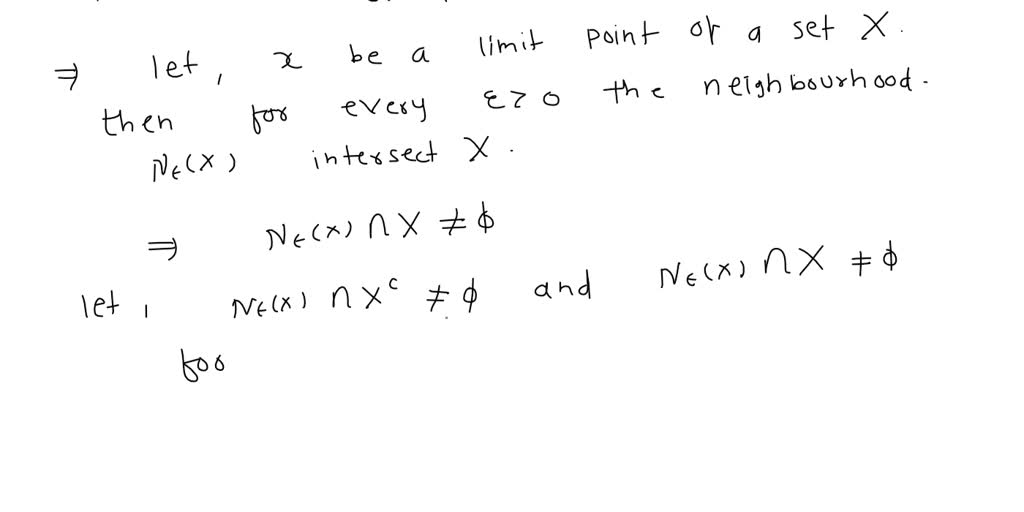 ⇒ let, x be a limit point of a set X.
then for every ε>0 the neighbourhood.
Nϵ(x) intersect X.
⇒ Nϵ(x) ∩ X ≠ ϕ
let, Nϵ(x) ∩ Xᶜ ≠ ϕ and Nϵ(x) ∩ X ≠ ϕ
for